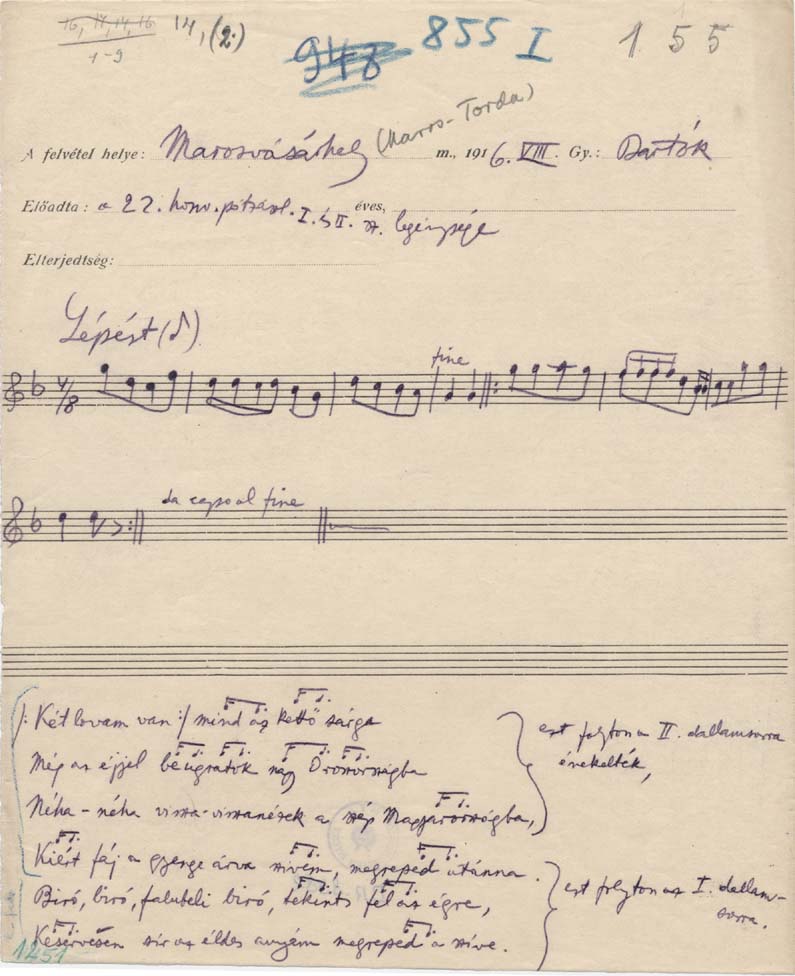 16, 17, 14, 16 14, (2.)
1-9
948 855 I 155
(Maros-Torda)
A felvétel helye: Marosvásárhely m., 1916. VIII. Gy.: Bartók
Előadta: a 22. honv. pótzászl. I. és II. sz. legénysége éves,
Elterjedtség:
Lépést (♩)
4/8
fine
da capo al fine
/: Két lovam van :/ mind az kettő sárga
Még az éjjel beugratok nagy Oroszországba
Néha-néha vissza-visszanézek a szép Magyarországba,
Kiért fáj a gyenge árva szivem, megreped utánna.
ezt folyton a II. dallamsorra
énekelték,
Biró, biró, falubeli biró, tekints fel az égre,
Keservesen sir az éldes anyám megreped a szive.
ezt folyton az I. dallam-
sorra.
1251